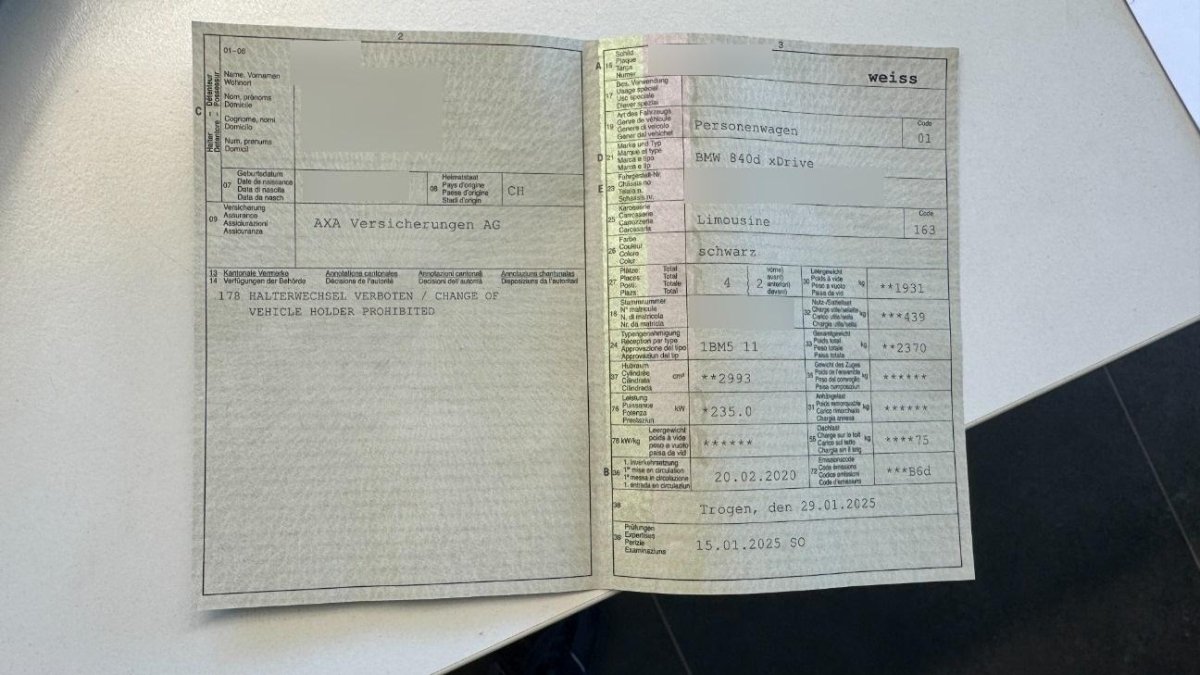 2
01-06
C
Halter - Détenteur
Detentore - Possessur
Name, Vornamen
Wohnort
Nom, prénoms
Domicile
Cognome, nomi
Domicilio
Num, prenums
Domicil
07
Geburtsdatum
Date de naissance
Data di nascita
Data da nasch
08
Heimatstaat
Pays d'origine
Paese d'origine
Stadi d'origin
CH
09
Versicherung
Assurance
Assicurazioni
Assicuranza
AXA Versicherungen AG
13 Kantonale Vermerke Annotations cantonales Annotazioni cantonali Annotaziuns chantunalas
14 Verfügungen der Behörde Décisions de l'autorité Decisioni dell'autorità Disposiziuns da l'autoritad
178 HALTERWECHSEL VERBOTEN / CHANGE OF
VEHICLE HOLDER PROHIBITED
3
A 15
Schild
Plaque
Targa
Numer
weiss
17
Bes. Verwendung
Usage spécial
Uso speciale
Diever spezial
19
Art des Fahrzeugs
Genre de véhicule
Genere di veicolo
Gener dal vehichel
Personenwagen
Code
01
D 21
Marke und Typ
Marque et type
Marca e tipo
Marca e tip
BMW 840d xDrive
E 23
Fahrgestell-Nr.
Châssis no
Telaio n.
Schassis nr.
25
Karosserie
Carrosserie
Carrozzeria
Carrossaria
Limousine
Code
163
26
Farbe
Couleur
Colore
Colur
schwarz
27
Plätze Total
Places Total
Posti Totale
Plazs Total
4
2
vorne
avant
anteriori
davant
30
Leergewicht
Poids à vide
Peso a vuoto
Paisa da vid
kg
**1931
18
Stammnummer
N° matricule
N. di matricola
Nr. da matricla
32
Nutz-/Sattellast
Charge utile/sellette
Carico utile/sella
Chargia utila/sella
kg
***439
24
Typengenehmigung
Réception par type
Approvazione del tipo
Approvaziun dal tip
1BM5 11
33
Gesamtgewicht
Poids total
Peso totale
Paisa totala
kg
**2370
37
Hubraum
Cylindrée
Cilindrata
Cilindrada
cm³
**2993
35
Gewicht des Zuges
Poids de l'ensemble
Peso del convoglio
Paisa cumposiziun
kg
******
76
Leistung
Puissance
Potenza
Prestaziun
kW
*235.0
31
Anhängelast
Poids remorquable
Carico rimorchiato
Chargia annexa
kg
******
78 kW/kg
Leergewicht
poids à vide
peso a vuoto
paisa da vid
******
55
Dachlast
Charge sur le toit
Carico sul tetto
Chargia sin il tetg
kg
****75
B 36
1. Inverkehrsetzung
1re mise en circulation
1a messa in circolazione
1. entrada en circulaziun
20.02.2020
72
Emissionscode
Code émissions
Codice emissioni
Code d'emissiuns
***B6d
38
Trogen, den 29.01.2025
39
Prüfungen
Expertises
Perizie
Examinaziuns
15.01.2025 SO